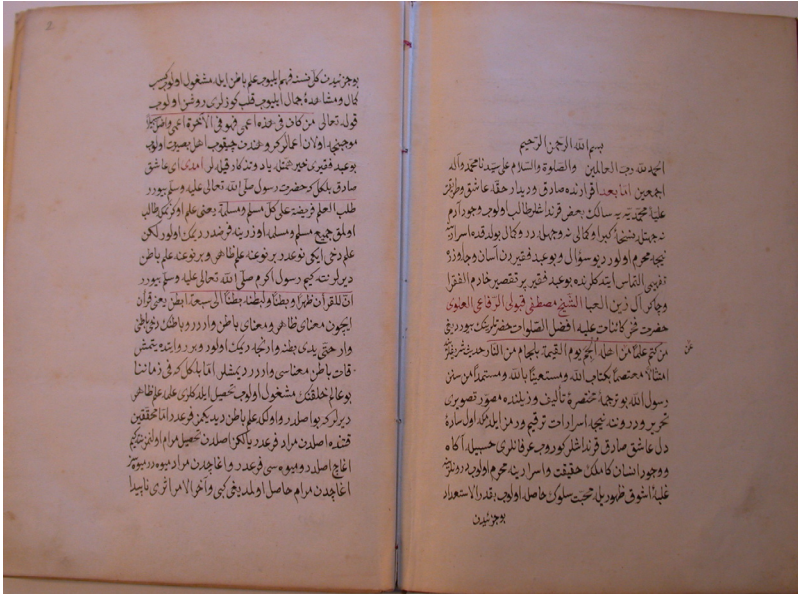 بسم الله الرحمن الرحيم
الحمد لله رب العالمين والصلوة والسلام على سيدنا محمد وآله
اجمعين اما بعد اقرارنده صادق و ديدار حقه عاشق وطريق
عليا محمديه يه سالك بعض فرنداغلر طالب اولوب وجود آدم
نه جهتله بشئ كبرا وكمالى نه وجهله در وكمالى بولدقده اسراره
نيجه محرم اولور ديو سؤال و بو عبد فقيردن آسان وجاوزه
تفهيمى التماس ايتدكلرنده بو عبد فقير پر تقصير خادم الفقرا
وچاكر آل زين العبا الشيخ مصطفى قبولى الرفاعى العلوى
حضرت فخر كائنات عليه افضل الصلوات حضرتلرينك بيوردیغى
من كتم علماً من اهله ألجم يوم القيمة بلجام من النار حديث شريفنه
امتثالاً معتصماً بكتاب الله ومستعيناً بالله ومستمداً من سنن
رسول الله بو ترجمۀ مختصرۀ تأليف وذيلنده مصور تصويرى
تحرير ودروننه نيجه اسرارات ترقيم ورمز ايلدمكه اول ساده
دل عاشق صادق فرنداشلر كوروب عرفانلرى حسبيله آكاه
ووجود انسان كاملك حقيقت واسرارينه محرم اولوب درونلرينه
غلبۀ شوق ظهوريله محبت سلوك حاصل اولوب بقدر الاستعداد
بو جزئيدن
2
بو جزئيدن كل نسنه فهم ايليوب علم باطن ايله مشغول اولوب كسب
كمال ومشاهدۀ جمال ايليوب قلب كوزلرى روشن اولوب
قوله تعالى من كان فى هذه اعمى فهو فى الآخرة اعمى
موجبنجه اولان اعمالر كروهندن چيقوب اهل بصيرت اولوب
بو عبد فقيرى خير ياد وتذكار قيله لر آمدى اى عاشق
صادق بلكل كه حضرت رسول صلى الله تعالى عليه وسلم بيورر
طلب العلم فريضة على كل مسلم ومسلمة يعنى علم اوكرنمكه طالب
اولمق جميع مسلم ومسلمه اوزرينه فرضدر ديمك اولور لكن
علم دخى ايكى نوعدر بر نوعنه علم ظاهر وبر نوعنه علم باطن
ديرلر نته كيم رسول اكرم صلى الله تعالى عليه وسلم بيورر
ان للقرآن ظهرا وبطنا ولبطنه بطنا الى سبعة ابطن يعنى قرآن
ايچون معناى ظاهر ومعناى باطن واردر وباطنك دخى باطنى
وار حتى يدى بطنه وارنجه ديمك اولور وبر روايتده يتمش
قات باطن معناسى واردر ديمشلر اما بلكل كه فى زماننا
بو عالم خلقنك مشغول اولوب تحصيل ايلدكلرى علمى علم ظاهر
ديرلر كه بو اصلدر واولكى علم باطن ديديكمز فرعدر اما محققين
قتنده اصلدن مراد فرعدر يالكز اصلدن تحصيل مرام اولنمز نته كيم
اغاچ اصلدر وميوه سى فرعدر واغاچدن مراد ميوه در ميوه سز
اغاچدن مرام حاصل اولمديغى كبى وآخر الامر اثرى ناپيدا